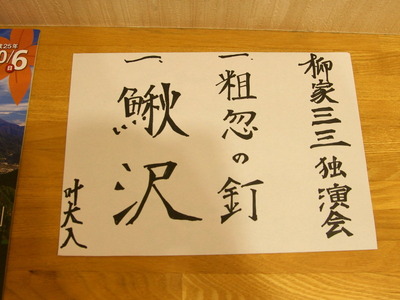 柳家三三独演会
一、粗忽の釘
一、鰍沢
叶大入
成25年
0/6